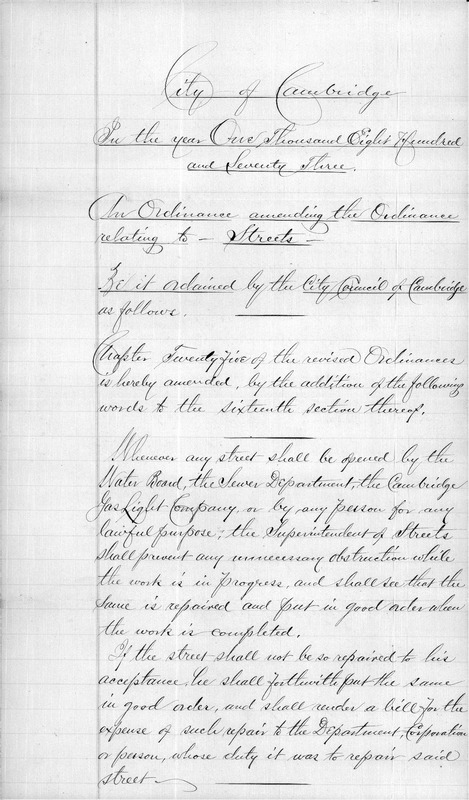 City of Cambridge
In the year One Thousand Eight Hundred
and Seventy Three.
An Ordinance amending the Ordinance
relating to — Streets —
Be it ordained by the City Council of Cambridge
as follows.
Chapter Twenty five of the revised Ordinances
is hereby amended, by the addition of the following
words to the sixteenth section thereof.
Whenever any street shall be opened by the
Water Board, the Sewer Department, the Cambridge
Gas Light Company, or by any person for any
lawful purpose; the Superintendent of Streets
shall prevent any unnecessary obstruction while
the work is in progress, and shall see that the
same is repaired and put in good order when
the work is completed.
If the street shall not be so repaired to his
acceptance, he shall forthwith put the same
in good order, and shall render a bill for the
expense of such repair to the Department, Corporation
or person, whose duty it was to repair said
street —